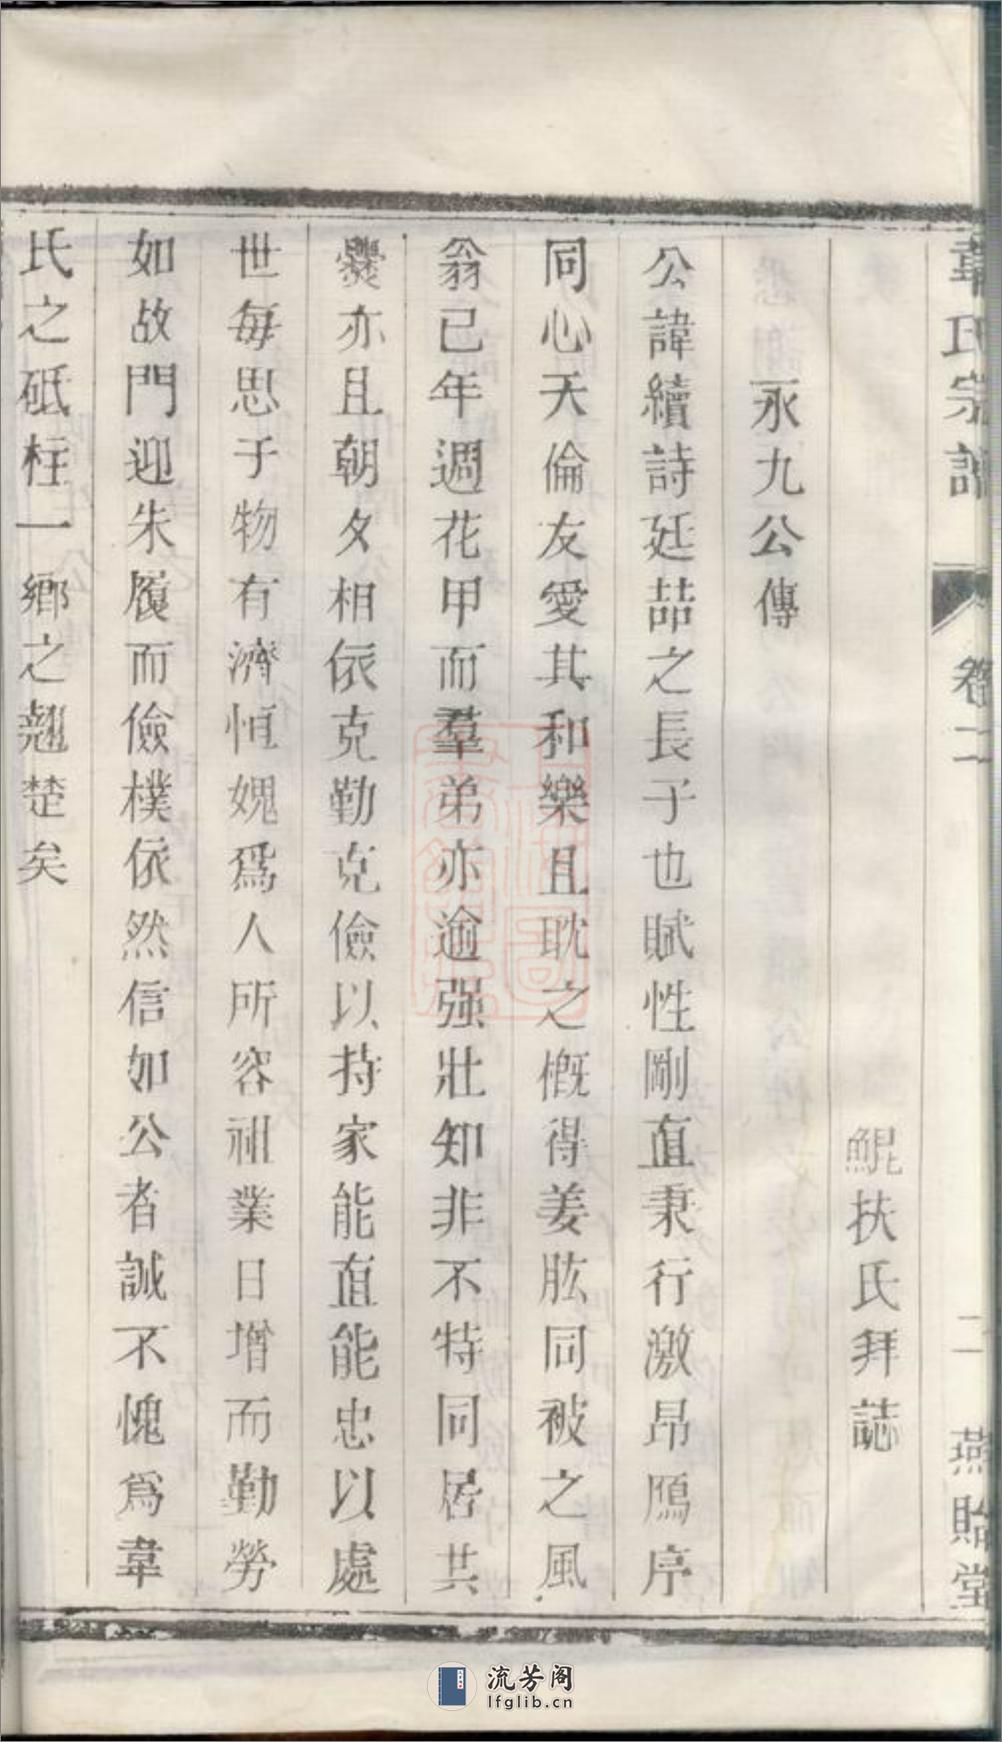 韋氏宗譜 卷二 二 燕貽堂
鯤扶氏拜誌
永九公傳
公諱續詩廷喆之長子也賦性剛直秉行激昂鴈序
同心天倫友愛其和樂且耽之概得姜肱同被之風
翁已年週花甲而羣弟亦逾强壯知非不特同居共
爨亦且朝夕相依克勤克儉以持家能直能忠以處
世每思于物有濟恒媿爲人所容祖業日增而勤勞
如故門迎朱履而儉樸依然信如公者誠不愧爲韋
氏之砥柱一鄉之翹楚矣
流芳阁
lfglib.cn